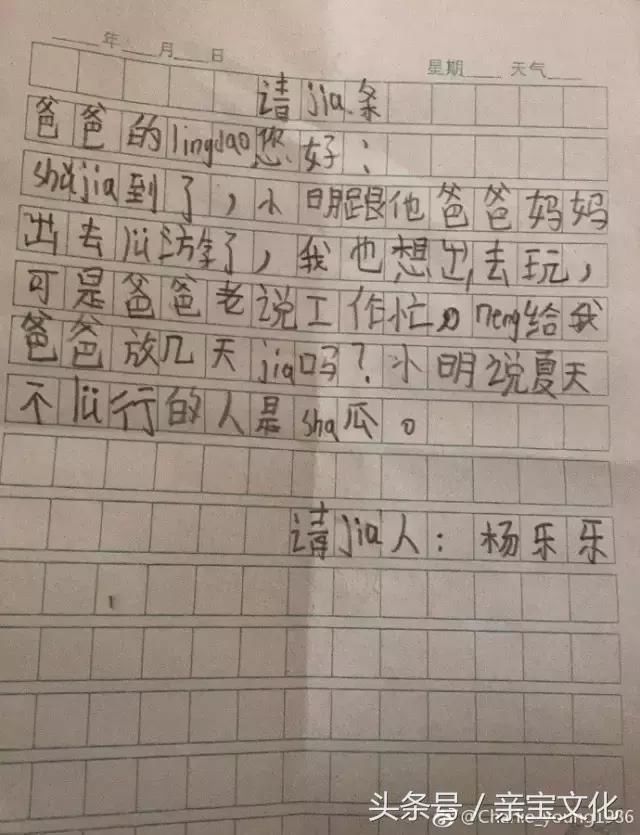 年 月 日
星期 天气
请jia条
爸爸的lingdao您好：
shǔjia到了，小明跟他爸爸妈妈
出去lü游了，我也想出去玩，
可是爸爸老说工作忙。neng给我
爸爸放几天jia吗？小明说夏天
不lü行的人是sha瓜。
请jia人：杨乐乐
头条号／亲宝文化
@Charlie_young1986